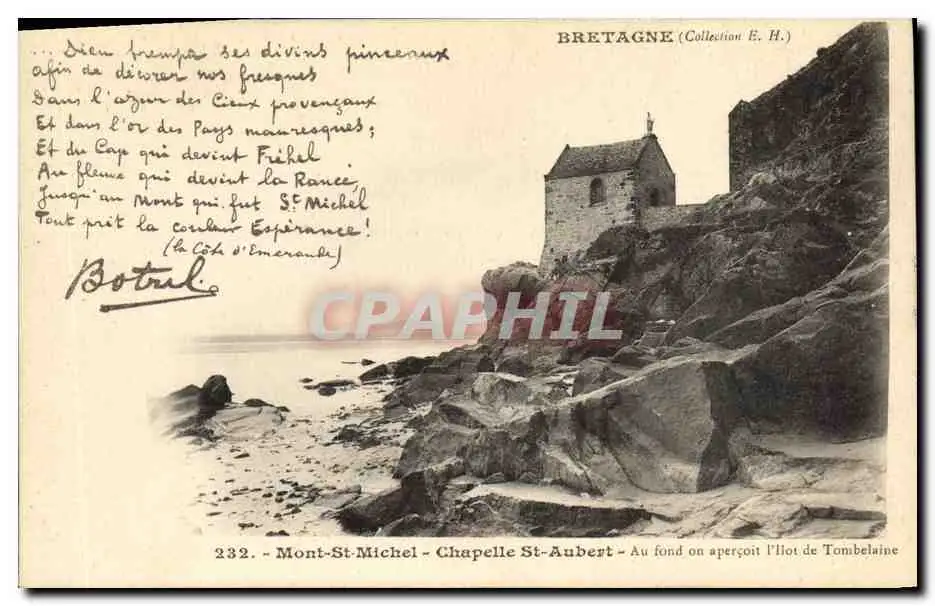 ... Dieu trempa ses divins pinceaux
afin de décorer nos fresques
Dans l'azur des Cieux provençaux
Et dans l'or des Pays mauresques ;
Et du Cap qui devint Fréhel
Au fleuve qui devint la Rance,
Jusqu'au Mont qui fut St Michel
Tout prit la couleur Espérance !
(la Côte d'Emeraude)
Botrel
BRETAGNE (Collection E. H.)
CPARPHIL
232. - Mont-St-Michel - Chapelle St-Aubert - Au fond on aperçoit l'Ilot de Tombelaine